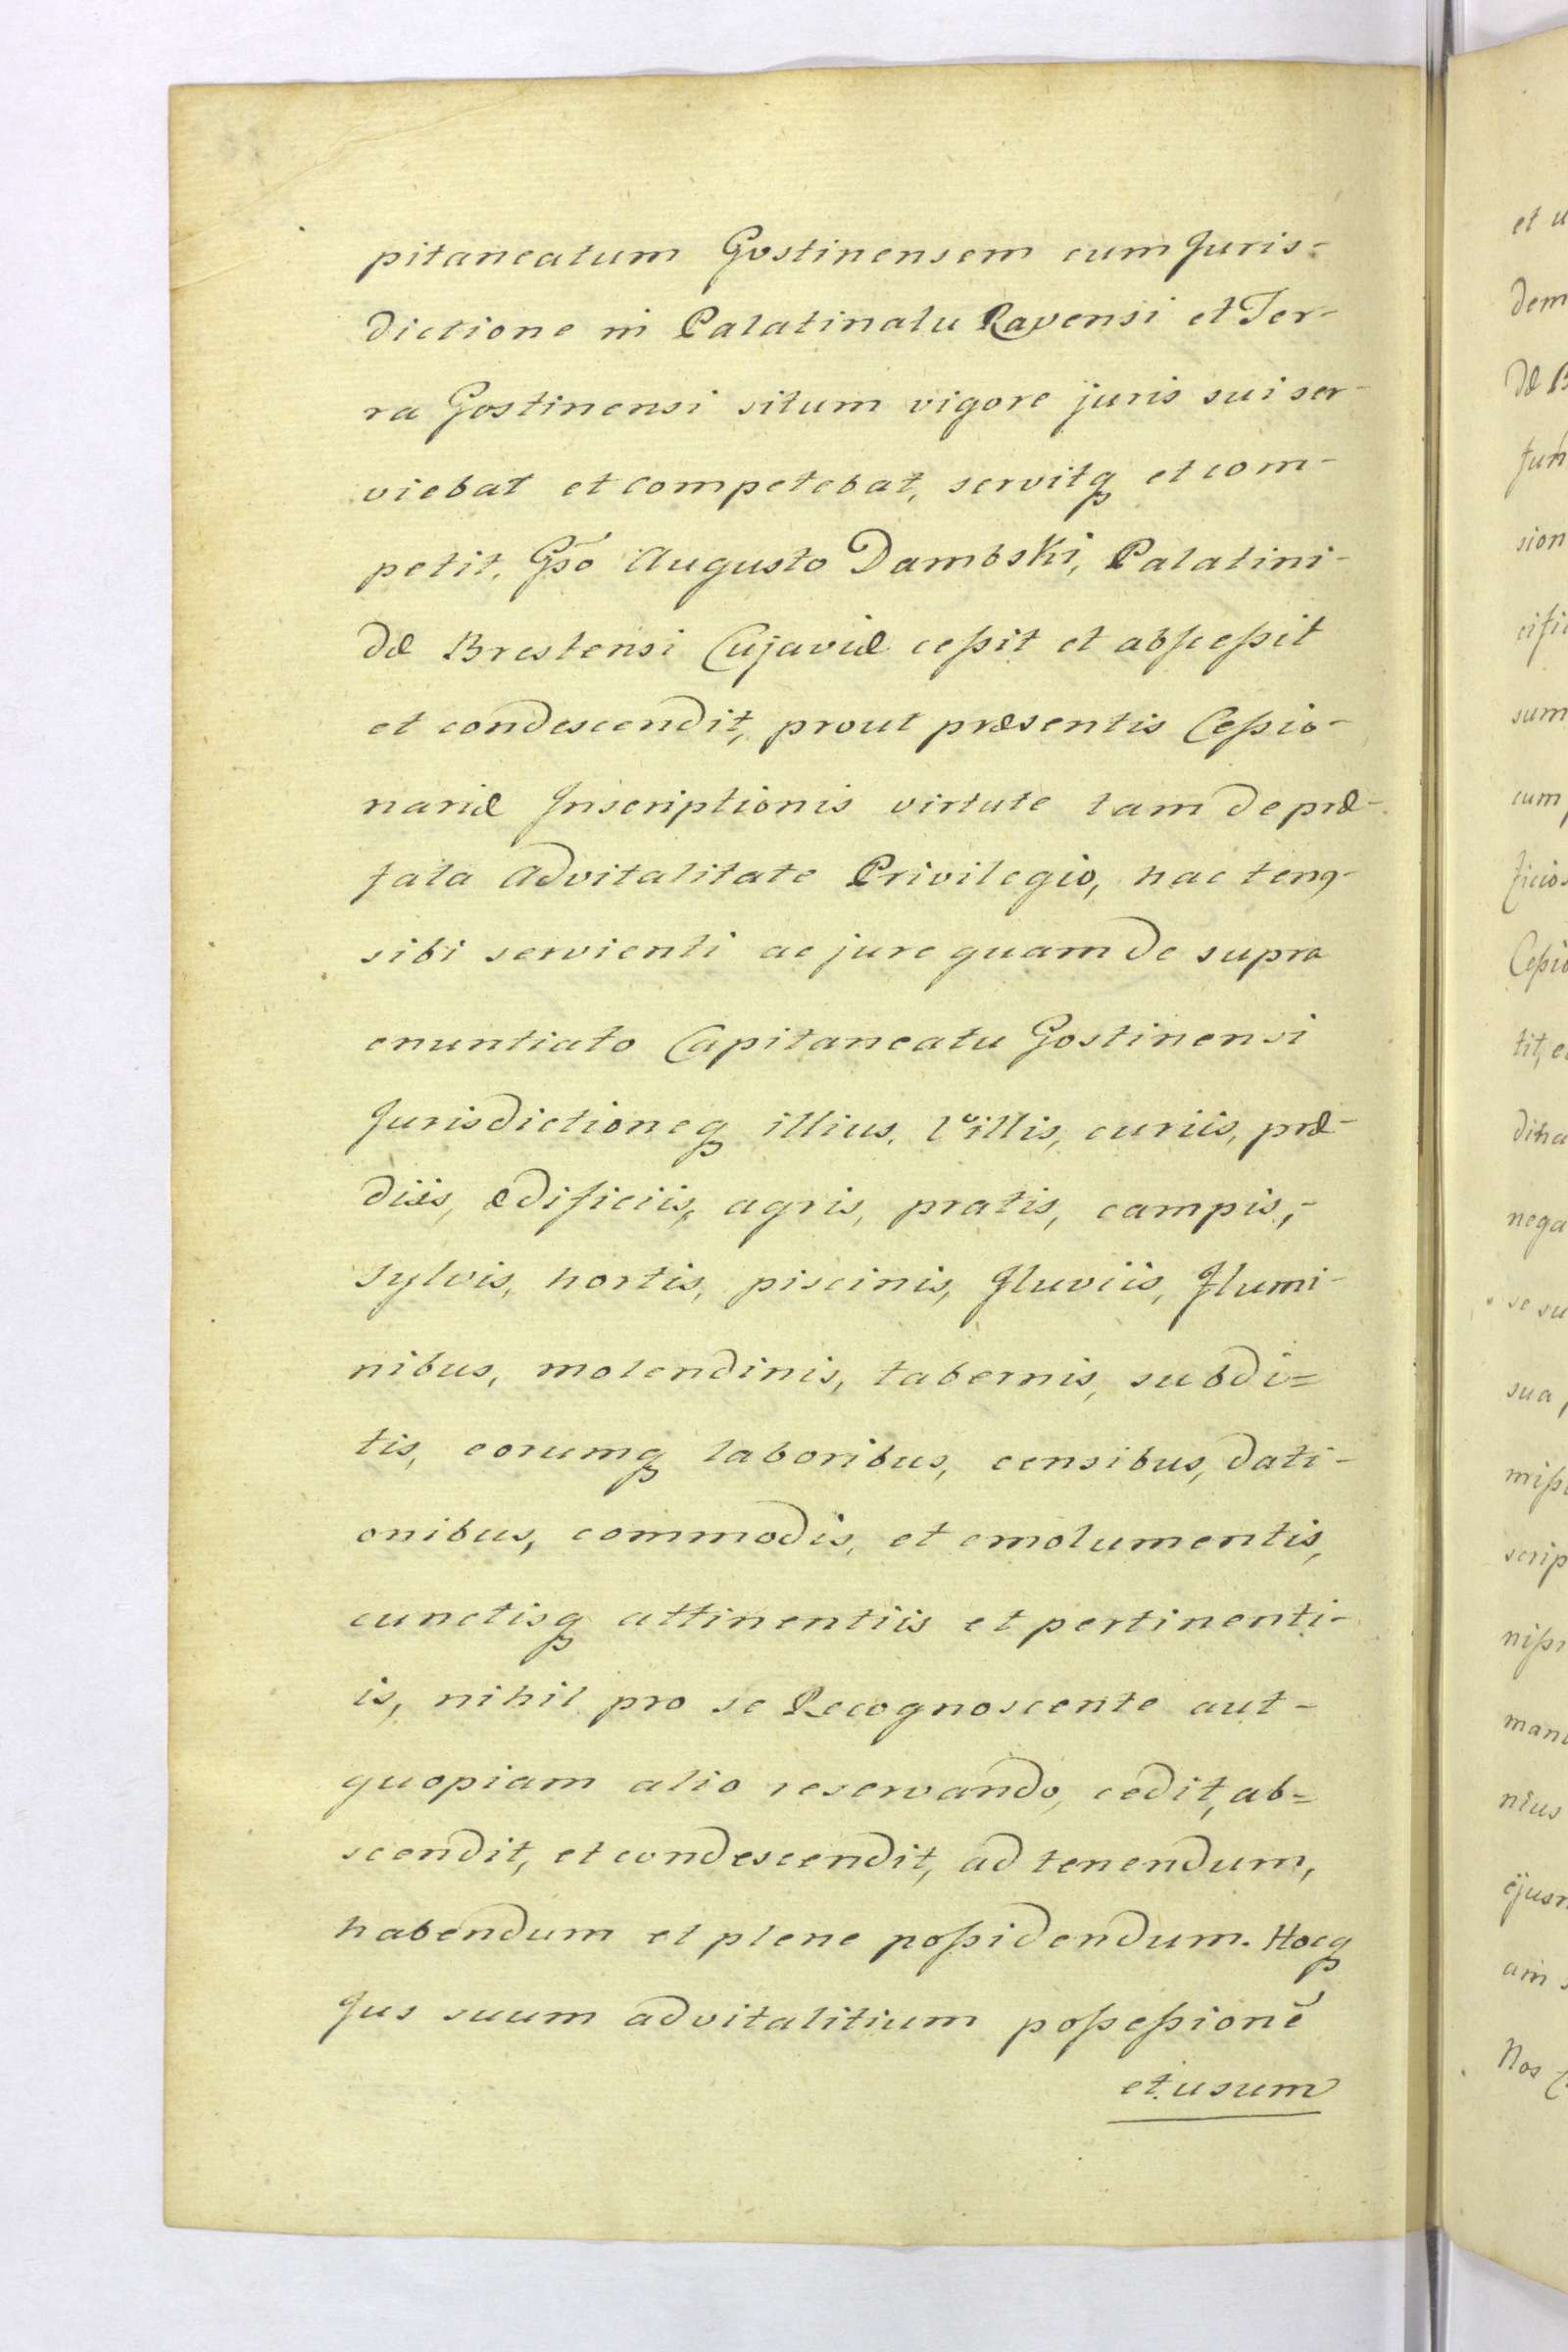 pitaneatum Gostinensem cum Juris-
dictione in Palatinatu Ravensi et Ter-
ra Gostinensi situm vigore juris sui ser-
viebat et competebat, servitq́ et com-
petit, Gsō Augusto Dambski, Palatini-
dæ Brestensi Cujaviæ ceſsit et abſceſsit
et condescendit, prout præsentis Ceſsio-
nariæ Inscriptionis virtute tam de præ-
fata advitalitate Privilegio, hac tenꝰ
sibi servienti ac jure quam de supra
enuntiato Capitaneatu Gostinensi
Jurisdictioneq illius, Villis, curiis, præ-
diis, ædificiis, agris, pratis, campis,-
sylvis, hortis, piscinis, fluviis, flumi-
nibus, molendinis, tabernis, subdi=
tis, eorumq laboribus, censibus, dati-
onibus, commodis, et emolumentis,
cunctisq attinentiis et pertinenti-
is, nihil pro se Recognoscente aut-
quopiam alio reservando, cedit, ab=
scendit, et condescendit, ad tenendum,
habendum et plene poſsidendum. Hocq
Jus suum advitalitium poſseſsionē
et usum
et u
dem
dæ B
sion
sum
cum
ficios
Ceſsio
tit, e
nega
se su
sua
scrip
nius
Nos